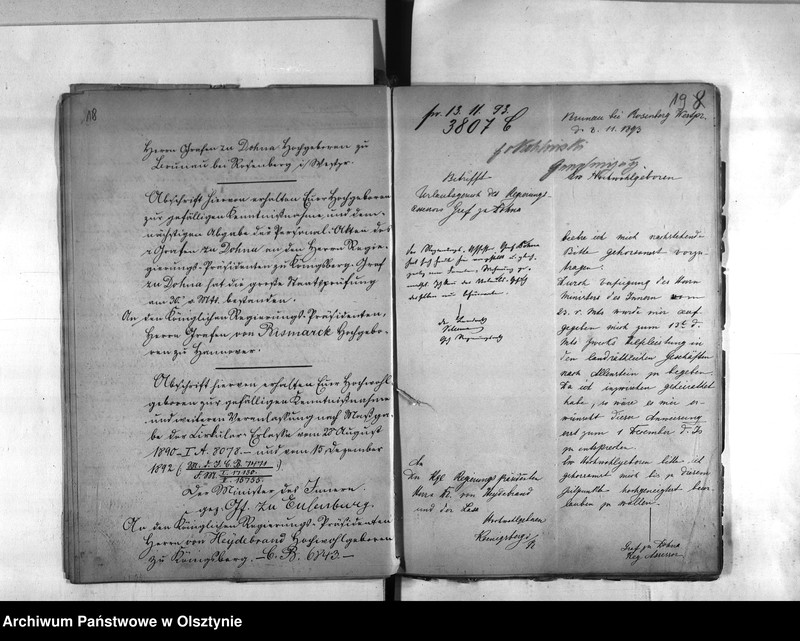 18
Herrn Grafen zu Dohna Hochgeboren zu
Brunau bei Rosenberg i/Westpr.
Abschrift hiervon erhalten Eure Hochgeboren
zur gefälligen Kenntnißnahme und dem-
nächstigen Abgabe der Personal-Akten des
Grafen zu Dohna an den Herrn Regie-
rungs-Präsidenten zu Königsberg. Graf
zu Dohna hat die große Staatsprüfung
am v. Mts. bestanden.
An den Königlichen Regierungs-Präsidenten,
Herrn Grafen von Bismarck Hochgebo-
ren zu Hannover.
Abschrift hiervon erhalten Eure Hochwohl-
geboren zur gefälligen Kenntnißnahme
und weiteren Veranlassung nach Maßga-
be der Cirkular-Erlasse vom 28 August
1890 - I. A. 8078. - und vom 15 Dezember
1892
Der Minister des Innern
gez. Gf. zu Eulenburg.
An den Königlichen Regierungs-Präsidenten
Herrn von Heydebrand Hochwohlgeboren
zu Königsberg. - C. B. 6843. -
19
8
pr. 13. 11. 93.
3807 C
Brunau bei Rosenberg Westpr.
d. 2. 11. 1893
Betrifft
Urlaubsgesuch des Regierungs-
Assessors Graf zu Dohna
Ew Hochwohlgeboren
bitte ich mich nachstehende
Bitte gehorsamst vorzu-
tragen:
Durch Verfügung des Herrn
Ministers des Innern vom
23. v. Mts wurde mir auf-
gegeben mich zum 13t d.
Mts zwecks Hilfeleistung in
den landräthlichen Geschäften
nach Allenstein zu begeben.
Da ich inzwischen geheirathet
habe, so wäre es mir er-
wünscht dieser Anweisung
erst zum 1 Dezember d. Js
zu entsprechen.
Ew Hochwohlgeboren bitte ich
gehorsamst mich bis zu diesem
Zeitpunkt hochgeneigtest beur-
lauben zu wollen.
Graf zu Dohna
Reg. Assessor
An
Den Kgl Regierungs Präsidenten
Herrn Dr. von Heydebrand
und der Lasa
Hochwohlgeboren
Koenigsberg i/P
Archiwum Państwowe w Olsztynie